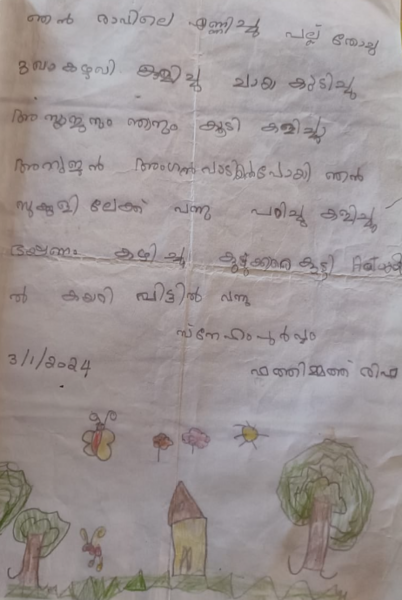 ഞൻ രാവിലെ എണ്ണിച്ചു പല്ല് തേച്ചു
കുളിച്ചു ചായ കുടിച്ചു
അനുജനും ഞാനും കൂടി കളിച്ചു
അനുജൻ അംഗൻവാടിൽപോയി ഞൻ
സുകുളി ലേക്ക് വന്നു പഠിച്ചു കളിച്ചു
ഭഷണം കഴിച്ചു കൂട്ടുക്കാരെ കൂട്ടി
ൽ കയറി വിട്ടിൽ വന്നു
സ്നേഹംപൂർവ്വം
3/1/2024
ഫാത്തിമ്മത്ത്